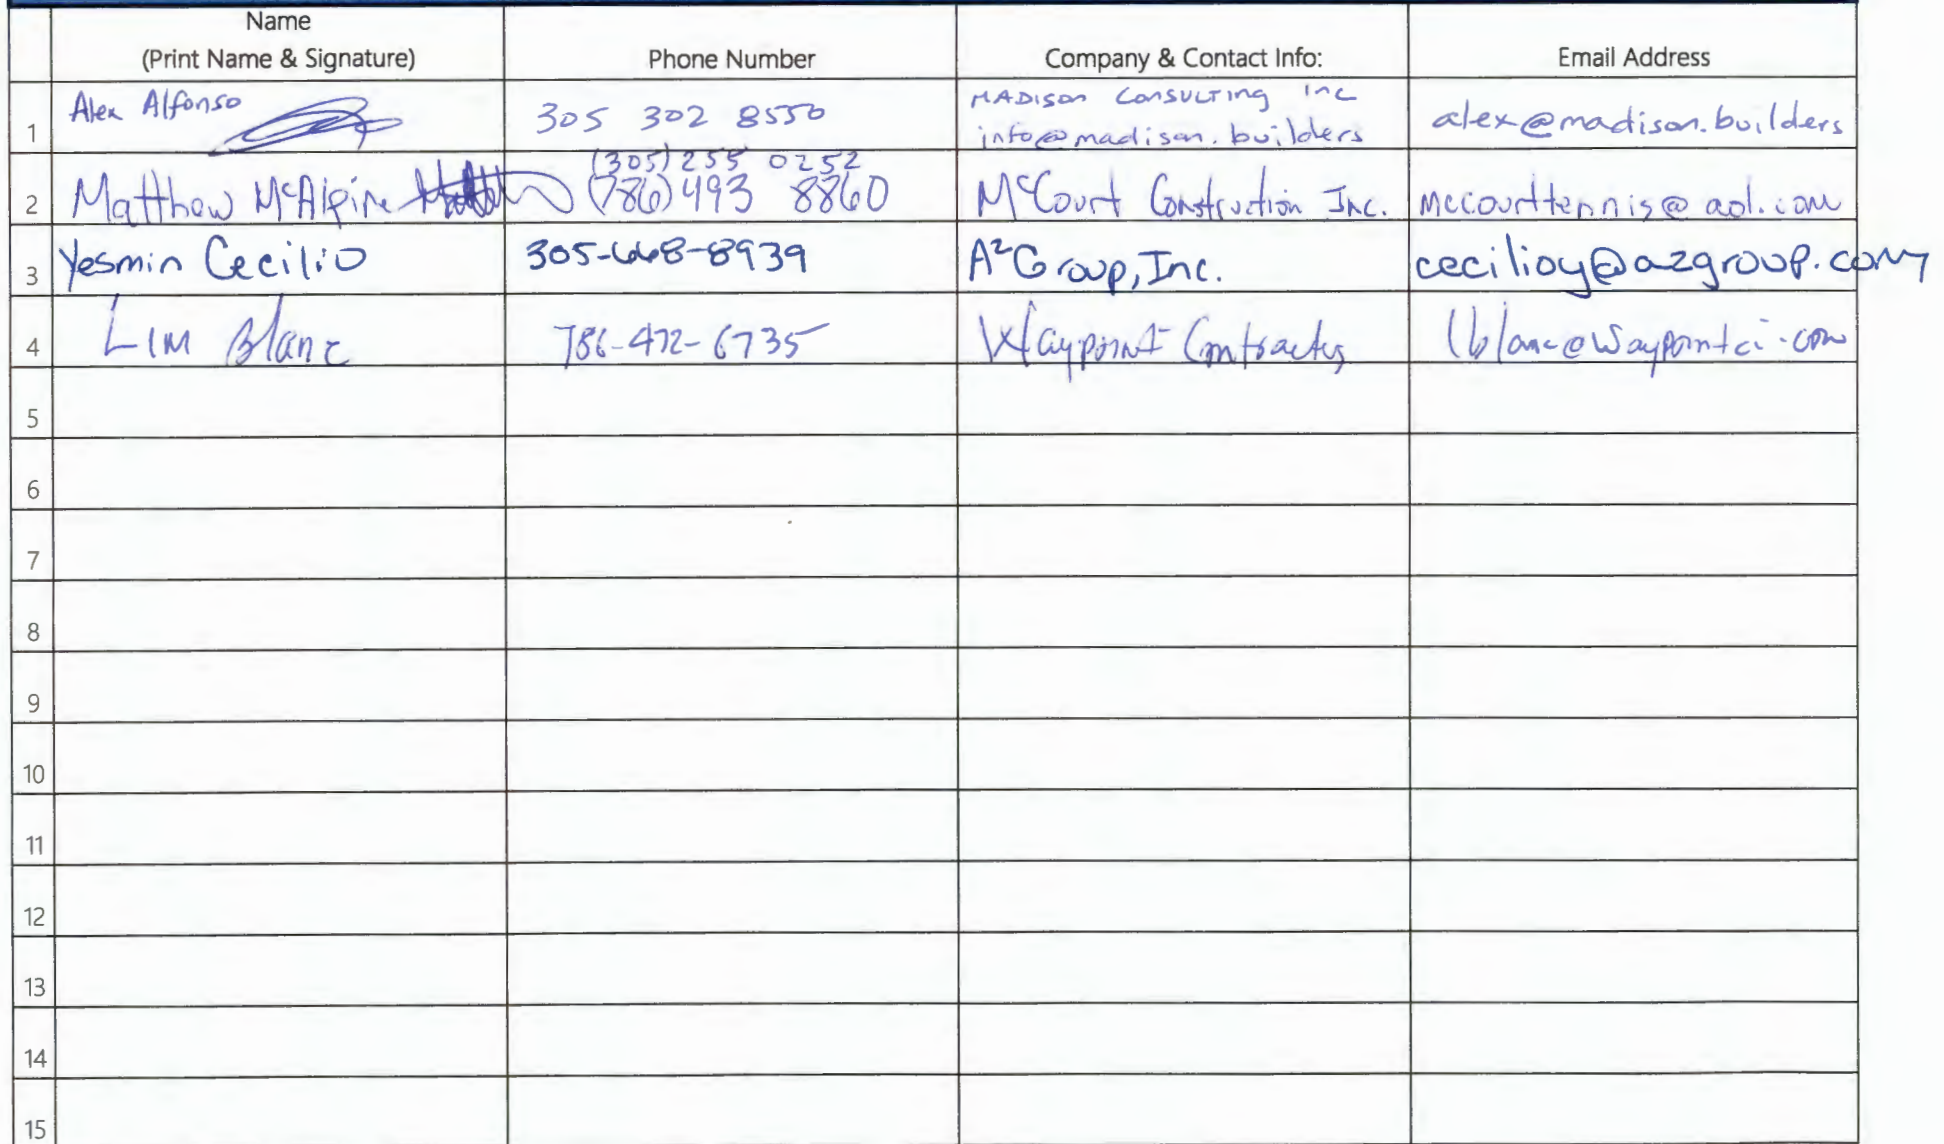 Name
(Print Name & Signature) Phone Number Company & Contact Info: Email Address
1 Alex Alfonso 305 302 8550 MADISON CONSULTING INC
info@madison.builders alex@madison.builders
(305) 255 0252
2 Matthew McAlpine (786) 493 8860 McCourt Construction Inc. mccourttennis@aol.com
3 Yesmin Cecilio 305-668-8939 A²Group, Inc. cecilioy@a2group.com
4 Lim Blanc 786-472-6735 Waypoint Contracting lblanc@waypointci.com
5
6
7
8
9
10
11
12
13
14
15